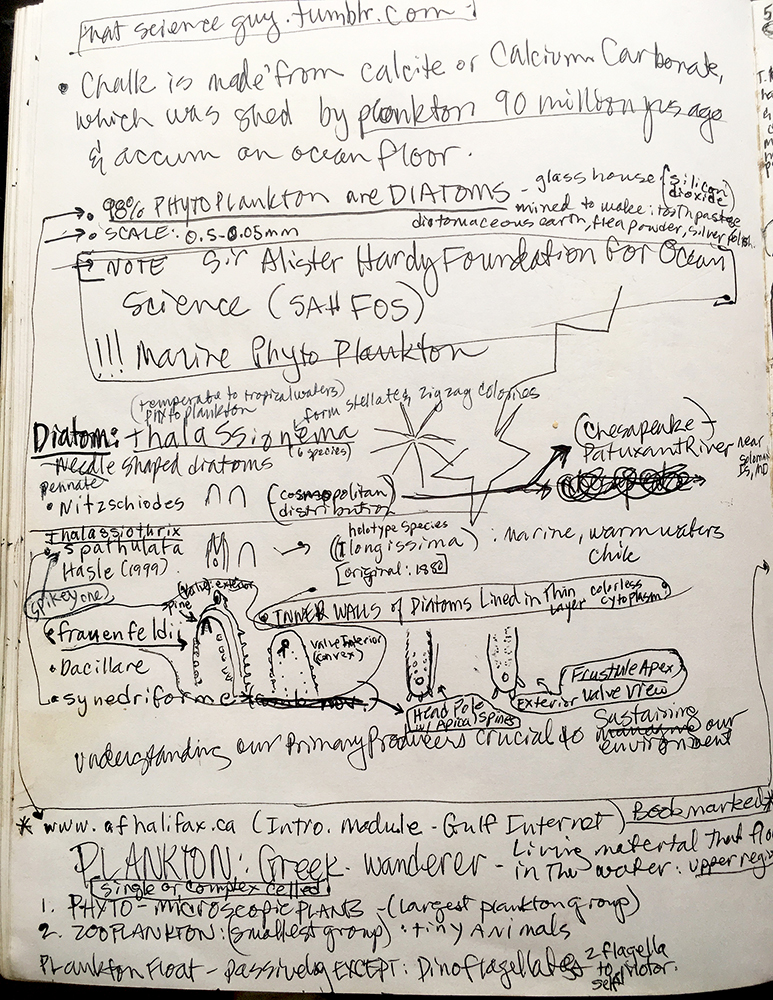 that science guy.tumblr.com
• Chalk is made from calcite or Calcium Carbonate,
which was shed by plankton 90 million yrs ago
& accum on ocean floor.
• 98% PHYTOPlankton are DIATOMS - glass house (silicon dioxide)
mined to make: toothpaste
diatomaceous earth, flea powder, silver polish.
• SCALE: 0.5-0.05mm
NOTE Sir Alister Hardy Foundation for Ocean
Science (SAHFOS)
!!! Marine Phyto Plankton
(temperate to tropical waters)
phytoplankton form stellate & zigzag colonies
Diatom: thalassionema
(6 species)
Needle shaped diatoms
pennate
• Nitzschiodes (cosmopolitan distribution)
(Chesapeake)
Patuxant River near Soloman Is, MD
thalassiothrix
• spathulata
Hasle (1999)
holotype species
(T longissima) : marine, warm waters
[original: 1880] Chile
(spikey one)
(valve: exterior)
spine
• INNER WALLS of Diatoms Lined in Thin Layer colorless cytoplasm
• frauenfeldii
valve Interior (convex)
• Bacillare
• synedriforme
Head Pole w/ Apical Spines
Frustule Apex
Exterior Valve View
understanding our Primary Producers crucial to Sustaining our environment
* www.afhalifax.ca (Intro. Module - Gulf Internet) Bookmarked *
PLANKTON: Greek - wanderer - Living material that flo
in the water: upper regi
single or complex celled
1. PHYTO - microscopic PLANTS - (largest plankton group)
2. ZOOPLANKTON: (smallest group): tiny Animals
Plankton Float - passively EXCEPT: Dinoflagellates 2 flagella to motor self